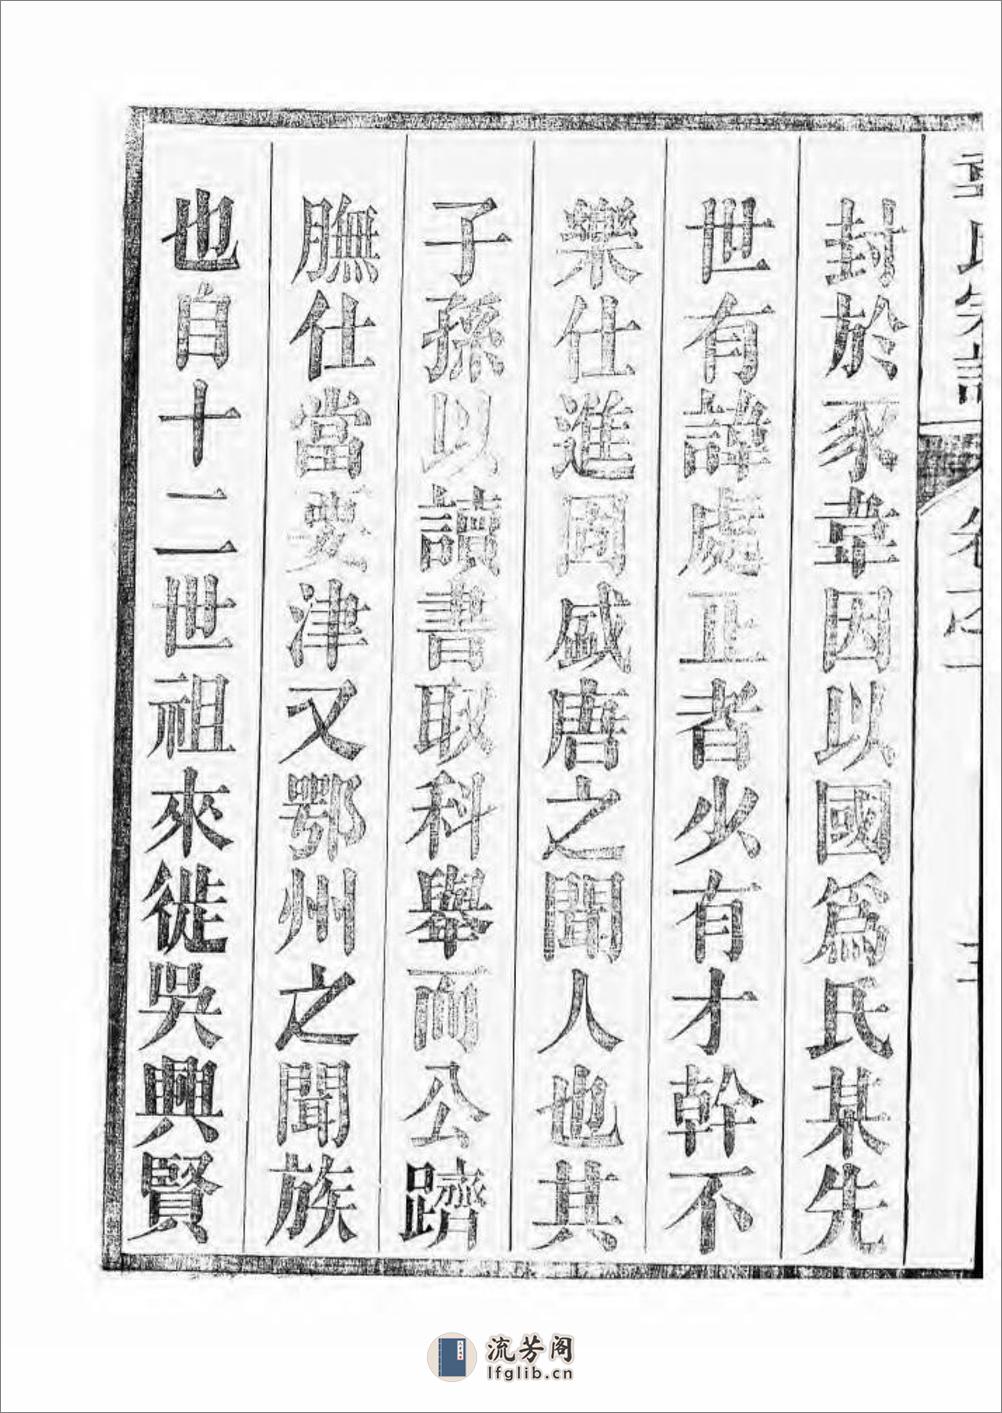 韋氏宗譜 卷之一
封於豕韋因以國爲氏某先
世有諱處正者少有才幹不
樂仕進固盛唐之聞人也其
子孫以讀書取科舉而公躋
膴仕當要津又鄂州之聞族
也自十二世祖來徙吳興賢
流芳阁
lfglib.cn